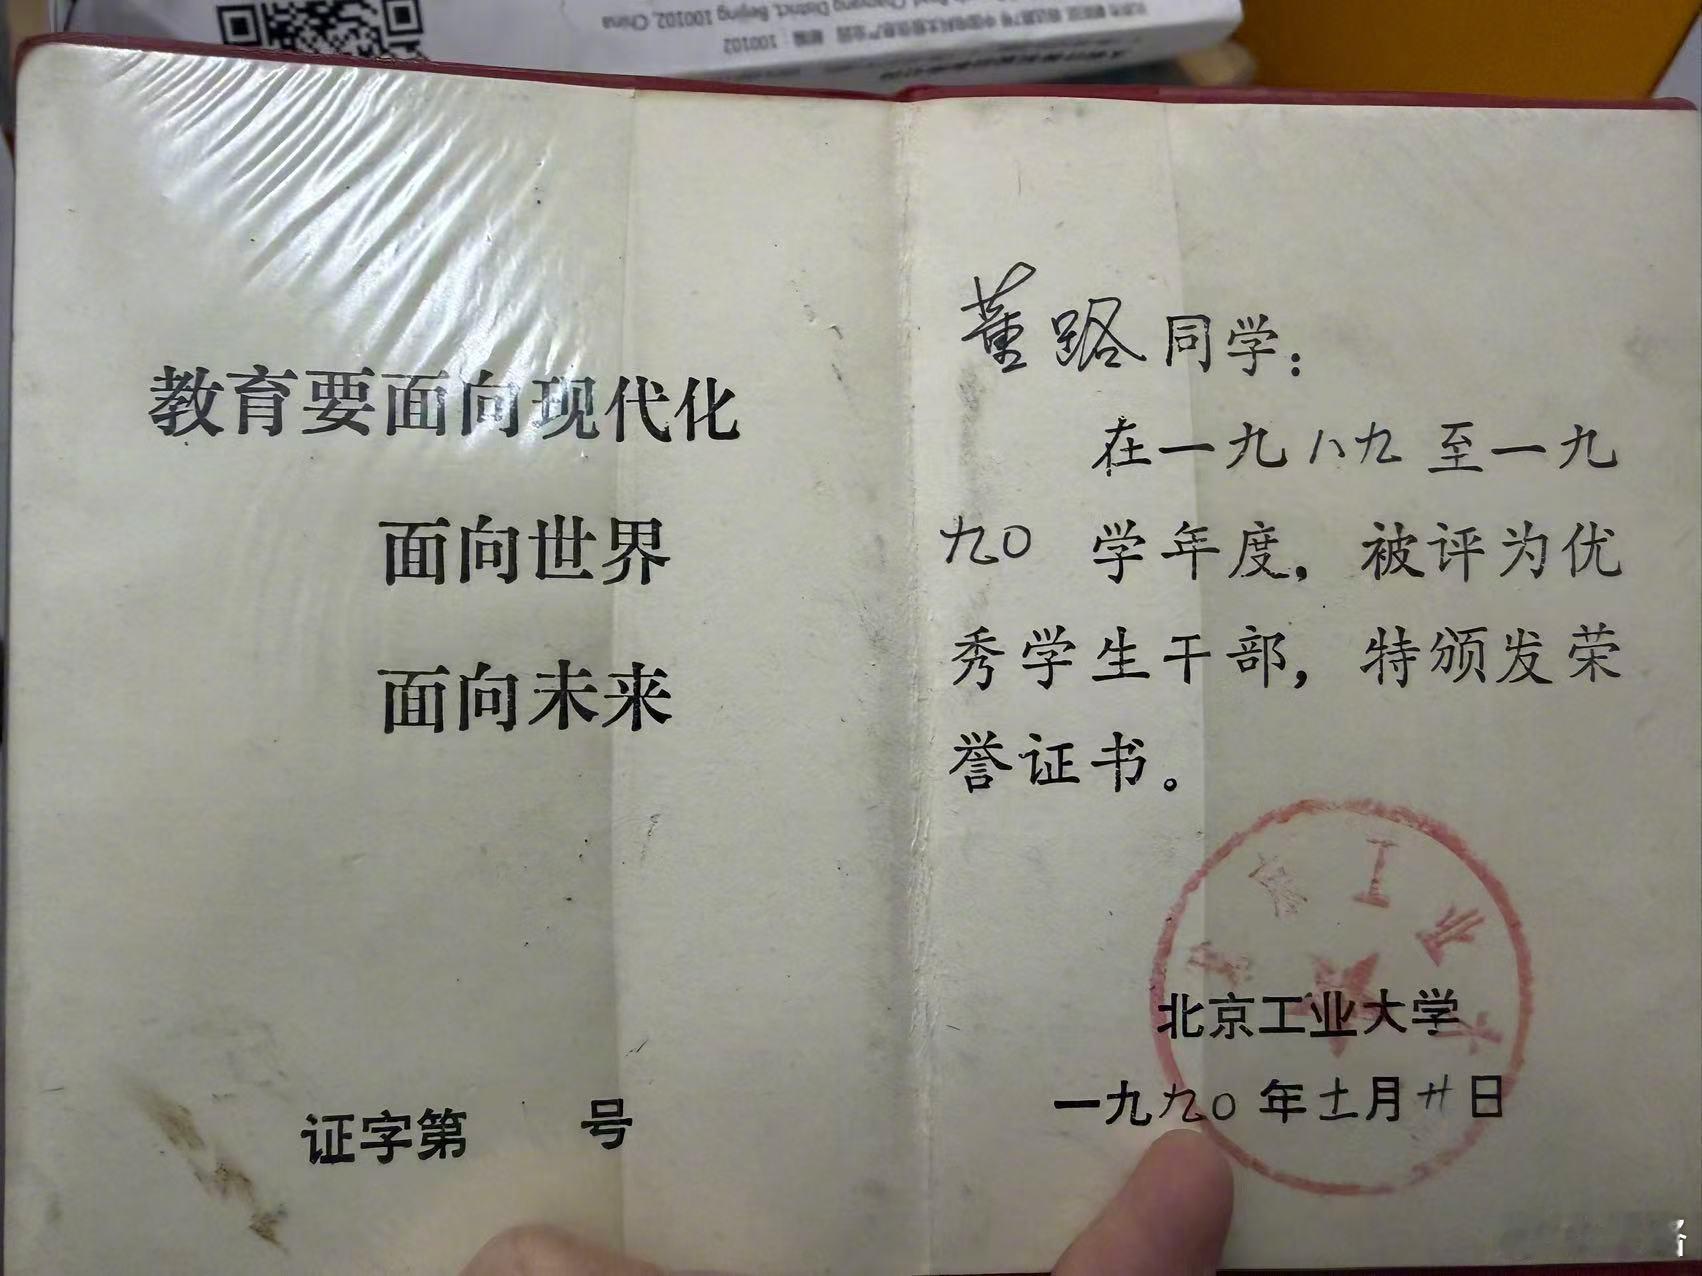 Chaoyang District, Beijing 100102, China
100102
教育要面向现代化
面向世界
面向未来
证字第 号
董路同学：
在一九八九至一九
九〇学年度，被评为优
秀学生干部，特颁发荣
誉证书。
北京工业大学
一九九〇年十一月廿日